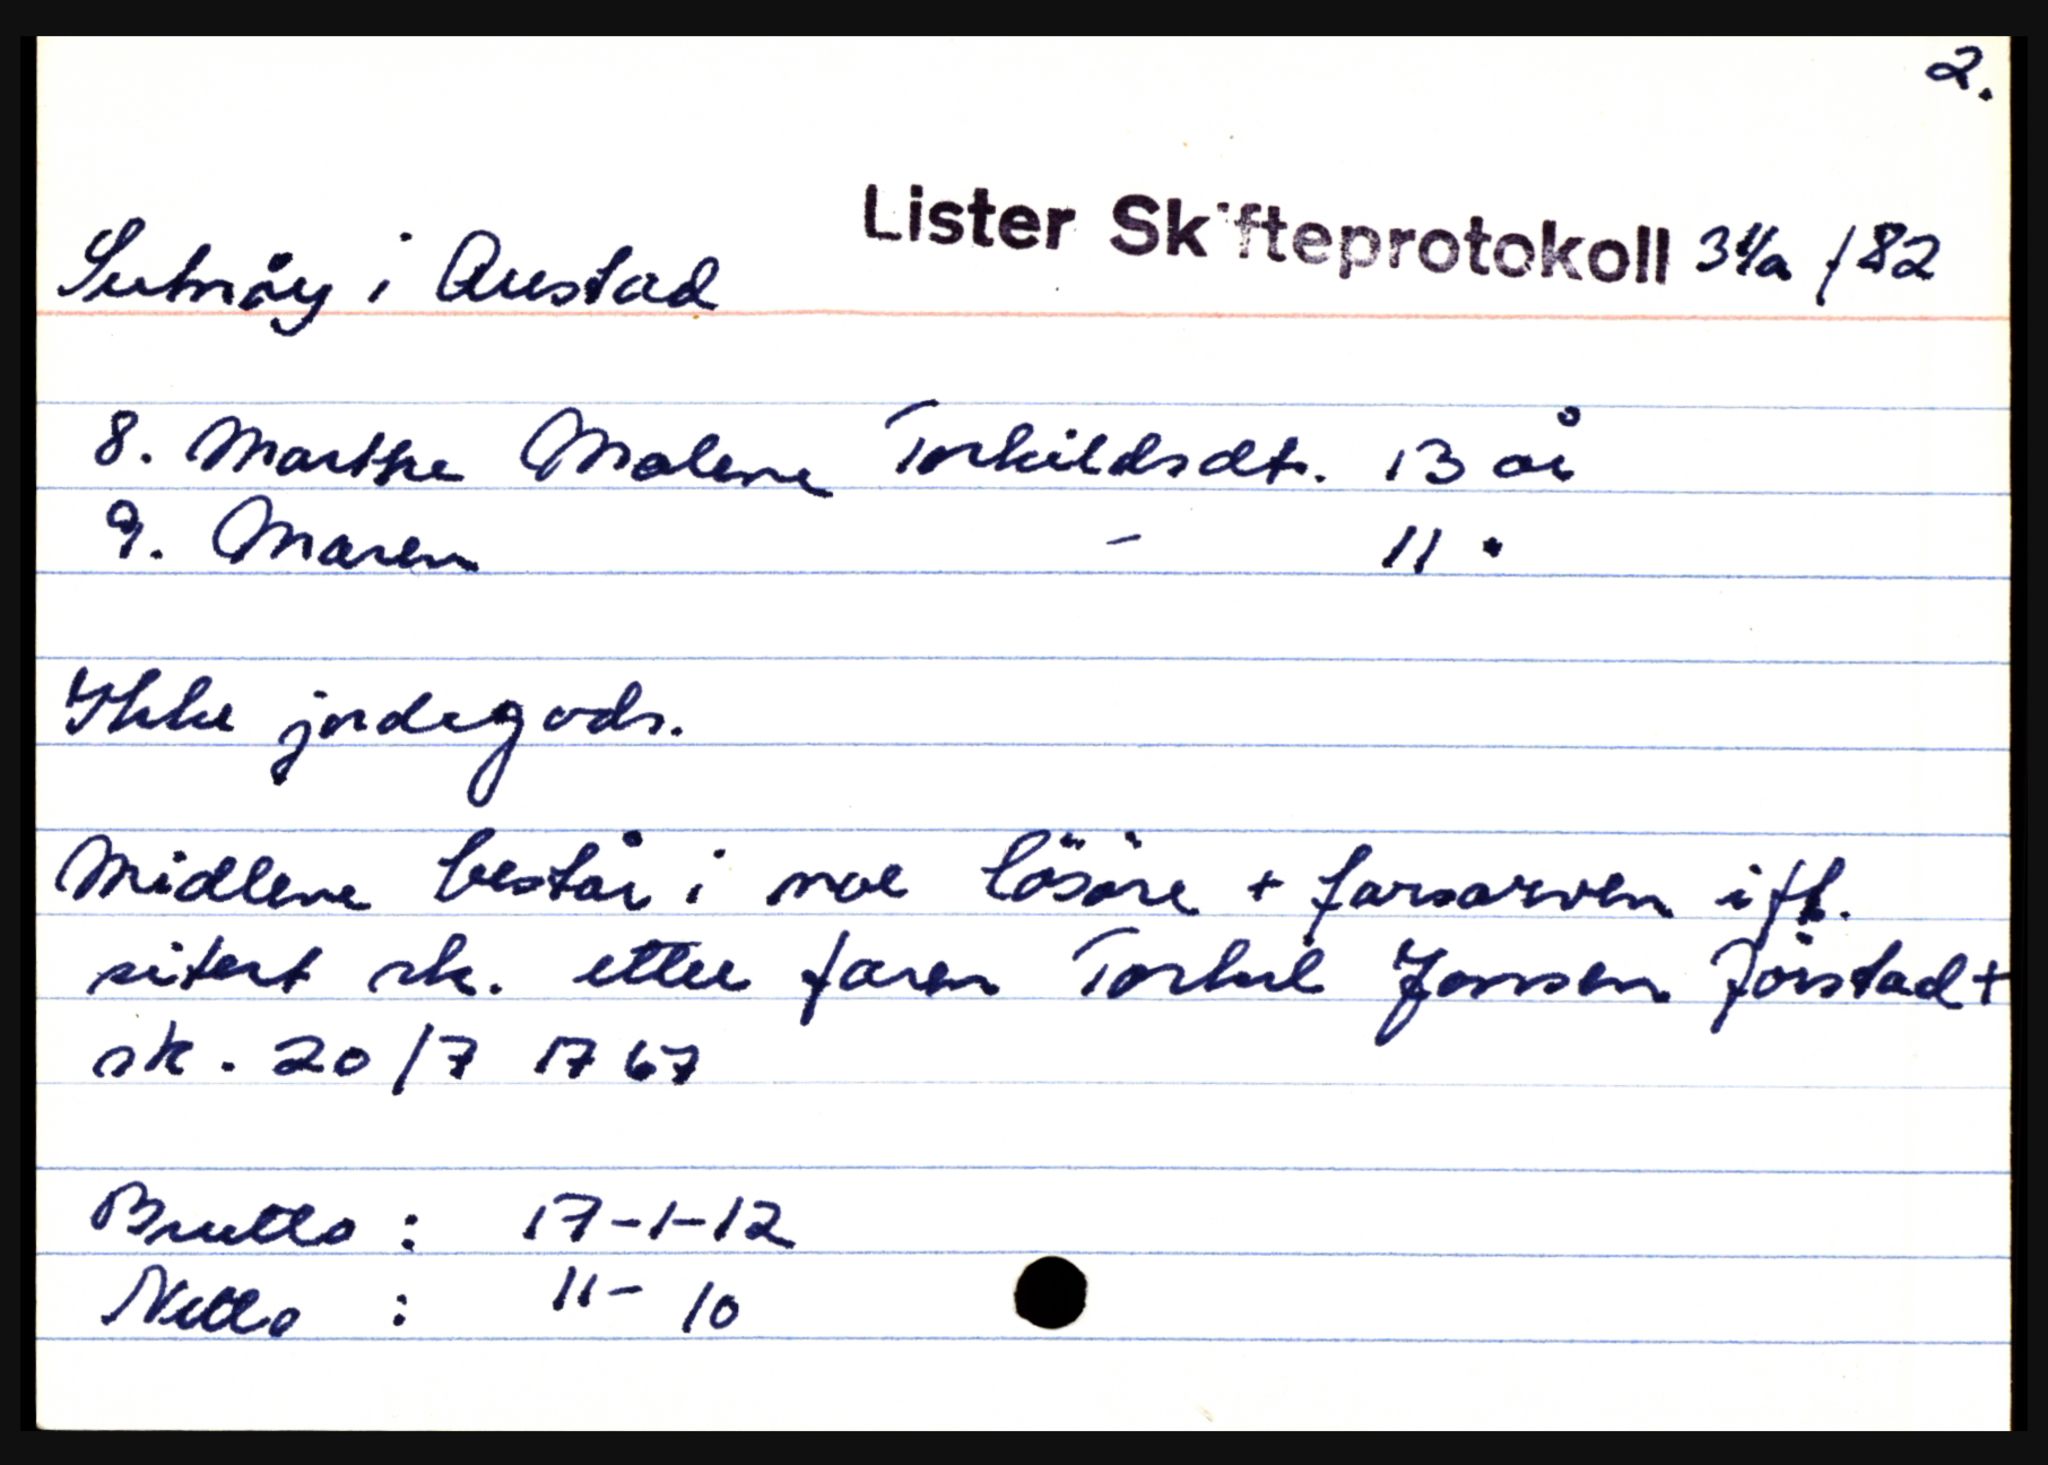 2.
Lister Skifteprotokoll 34a / 82
Sutnøy i Austad
8. Marthe Malene Torkildsdt. 13 år
9. Maren - 11 "
Ikke jordegods.
Midlene består i noe løsøre + farsarven ifl.
sitert sk. etter faren Torkil Jonsen Jørstad +
sk. 20/7 1767
Brutto : 17-1-12
Netto : 11- 10